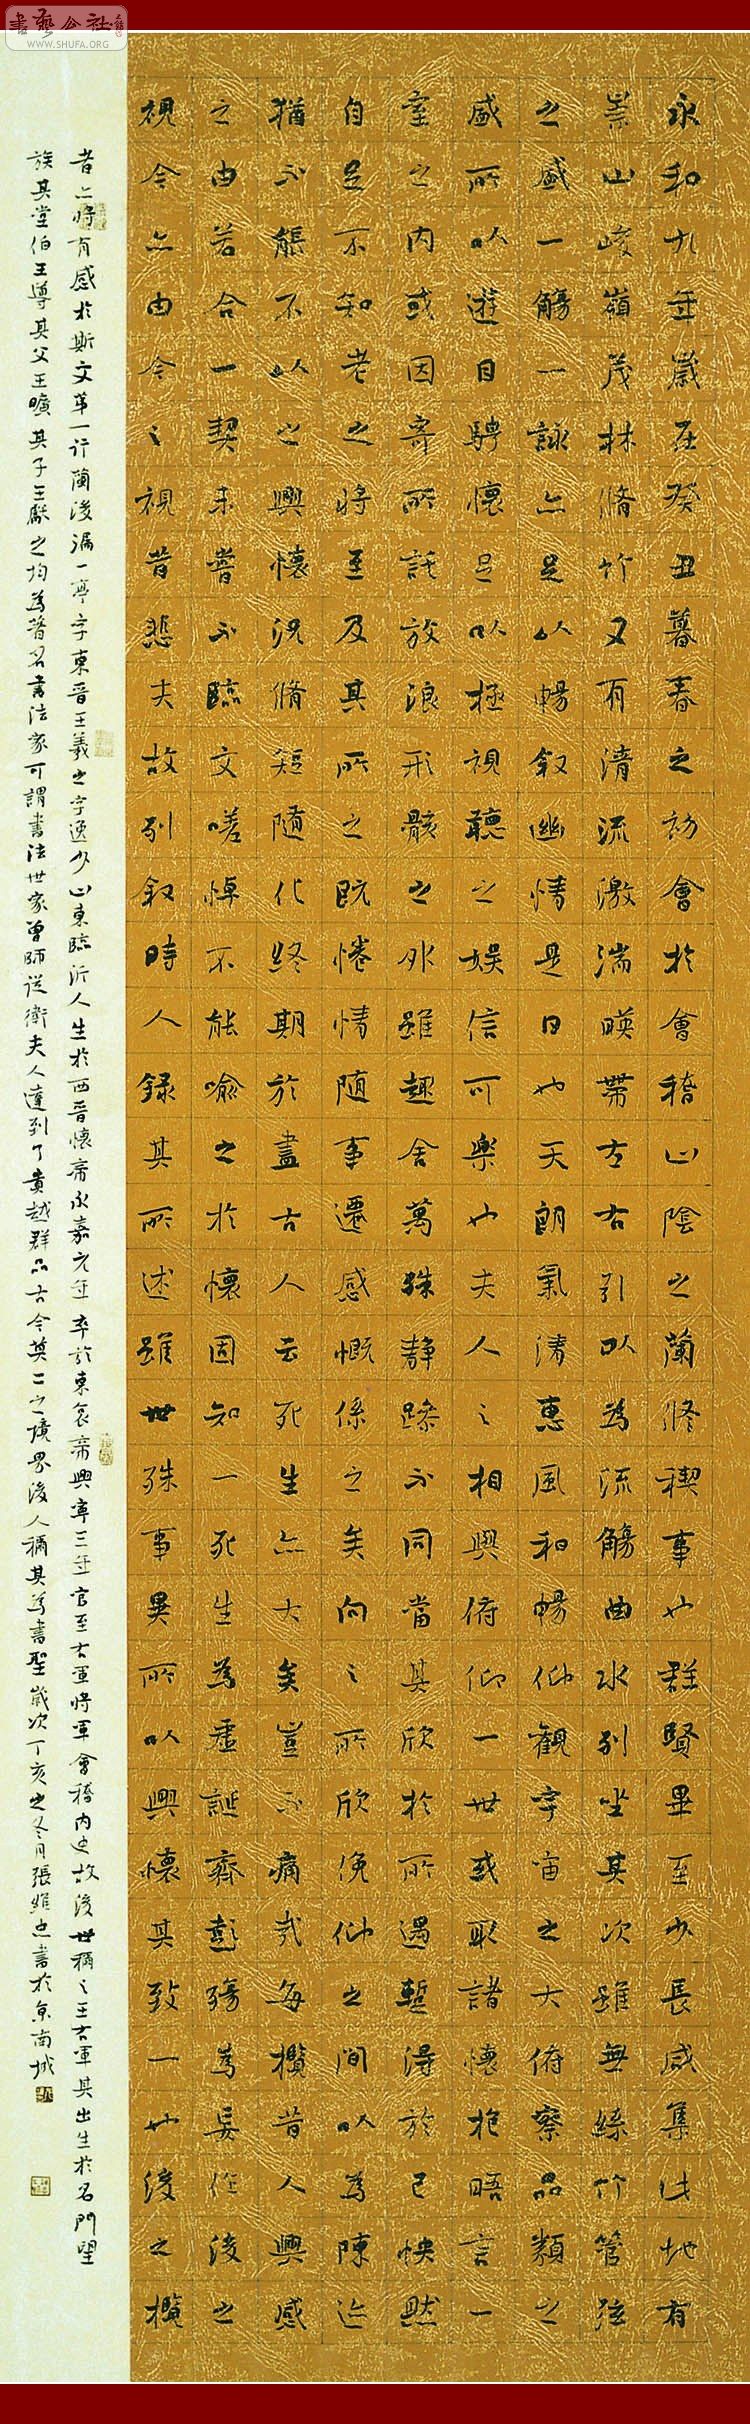 永和九年歲在癸丑暮春之初會於會稽山陰之蘭脩禊事也群賢畢至少長咸集此地有
崇山峻嶺茂林脩竹又有清流激湍暎帶左右引以為流觴曲水列坐其次雖無絲竹管弦
之盛一觴一詠亦足以暢敘幽情是日也天朗氣清惠風和暢仰觀宇宙之大俯察品類之
盛所以遊目騁懷足以極視聽之娛信可樂也夫人之相與俯仰一世或取諸懷抱晤言一
室之內或因寄所託放浪形骸之外雖趣舍萬殊靜躁不同當其欣於所遇暫得於己怏然
自足不知老之將至及其所之既惓情隨事遷感慨係之矣向之所欣俛仰之間以為陳迹
猶不能不以之興懷況脩短隨化終期於盡古人云死生亦大矣豈不痛哉每攬昔人興感
之由若合一契未嘗不臨文嗟悼不能喻之於懷固知一死生為虛誕齊彭殤為妄作後之
視今亦由今之視昔悲夫故列敘時人錄其所述雖世殊事異所以興懷其致一也後之攬
者亦將有感於斯文第一行蘭後漏一亭字東晉王羲之字逸少山東臨沂人生於西晉懷帝永嘉元年卒於東哀帝興寧三年官至右軍將軍會稽內史故後世稱之王右軍其出生於名門望
族其堂伯王導其父王曠其子王獻之均為著名書法家可謂書法世家曾師從衛夫人達到了貴越群品古今莫二之境界後人稱其為書聖歲次丁亥之冬月張維忠書於京南城
書藝公社
WWW.SHUFA.ORG